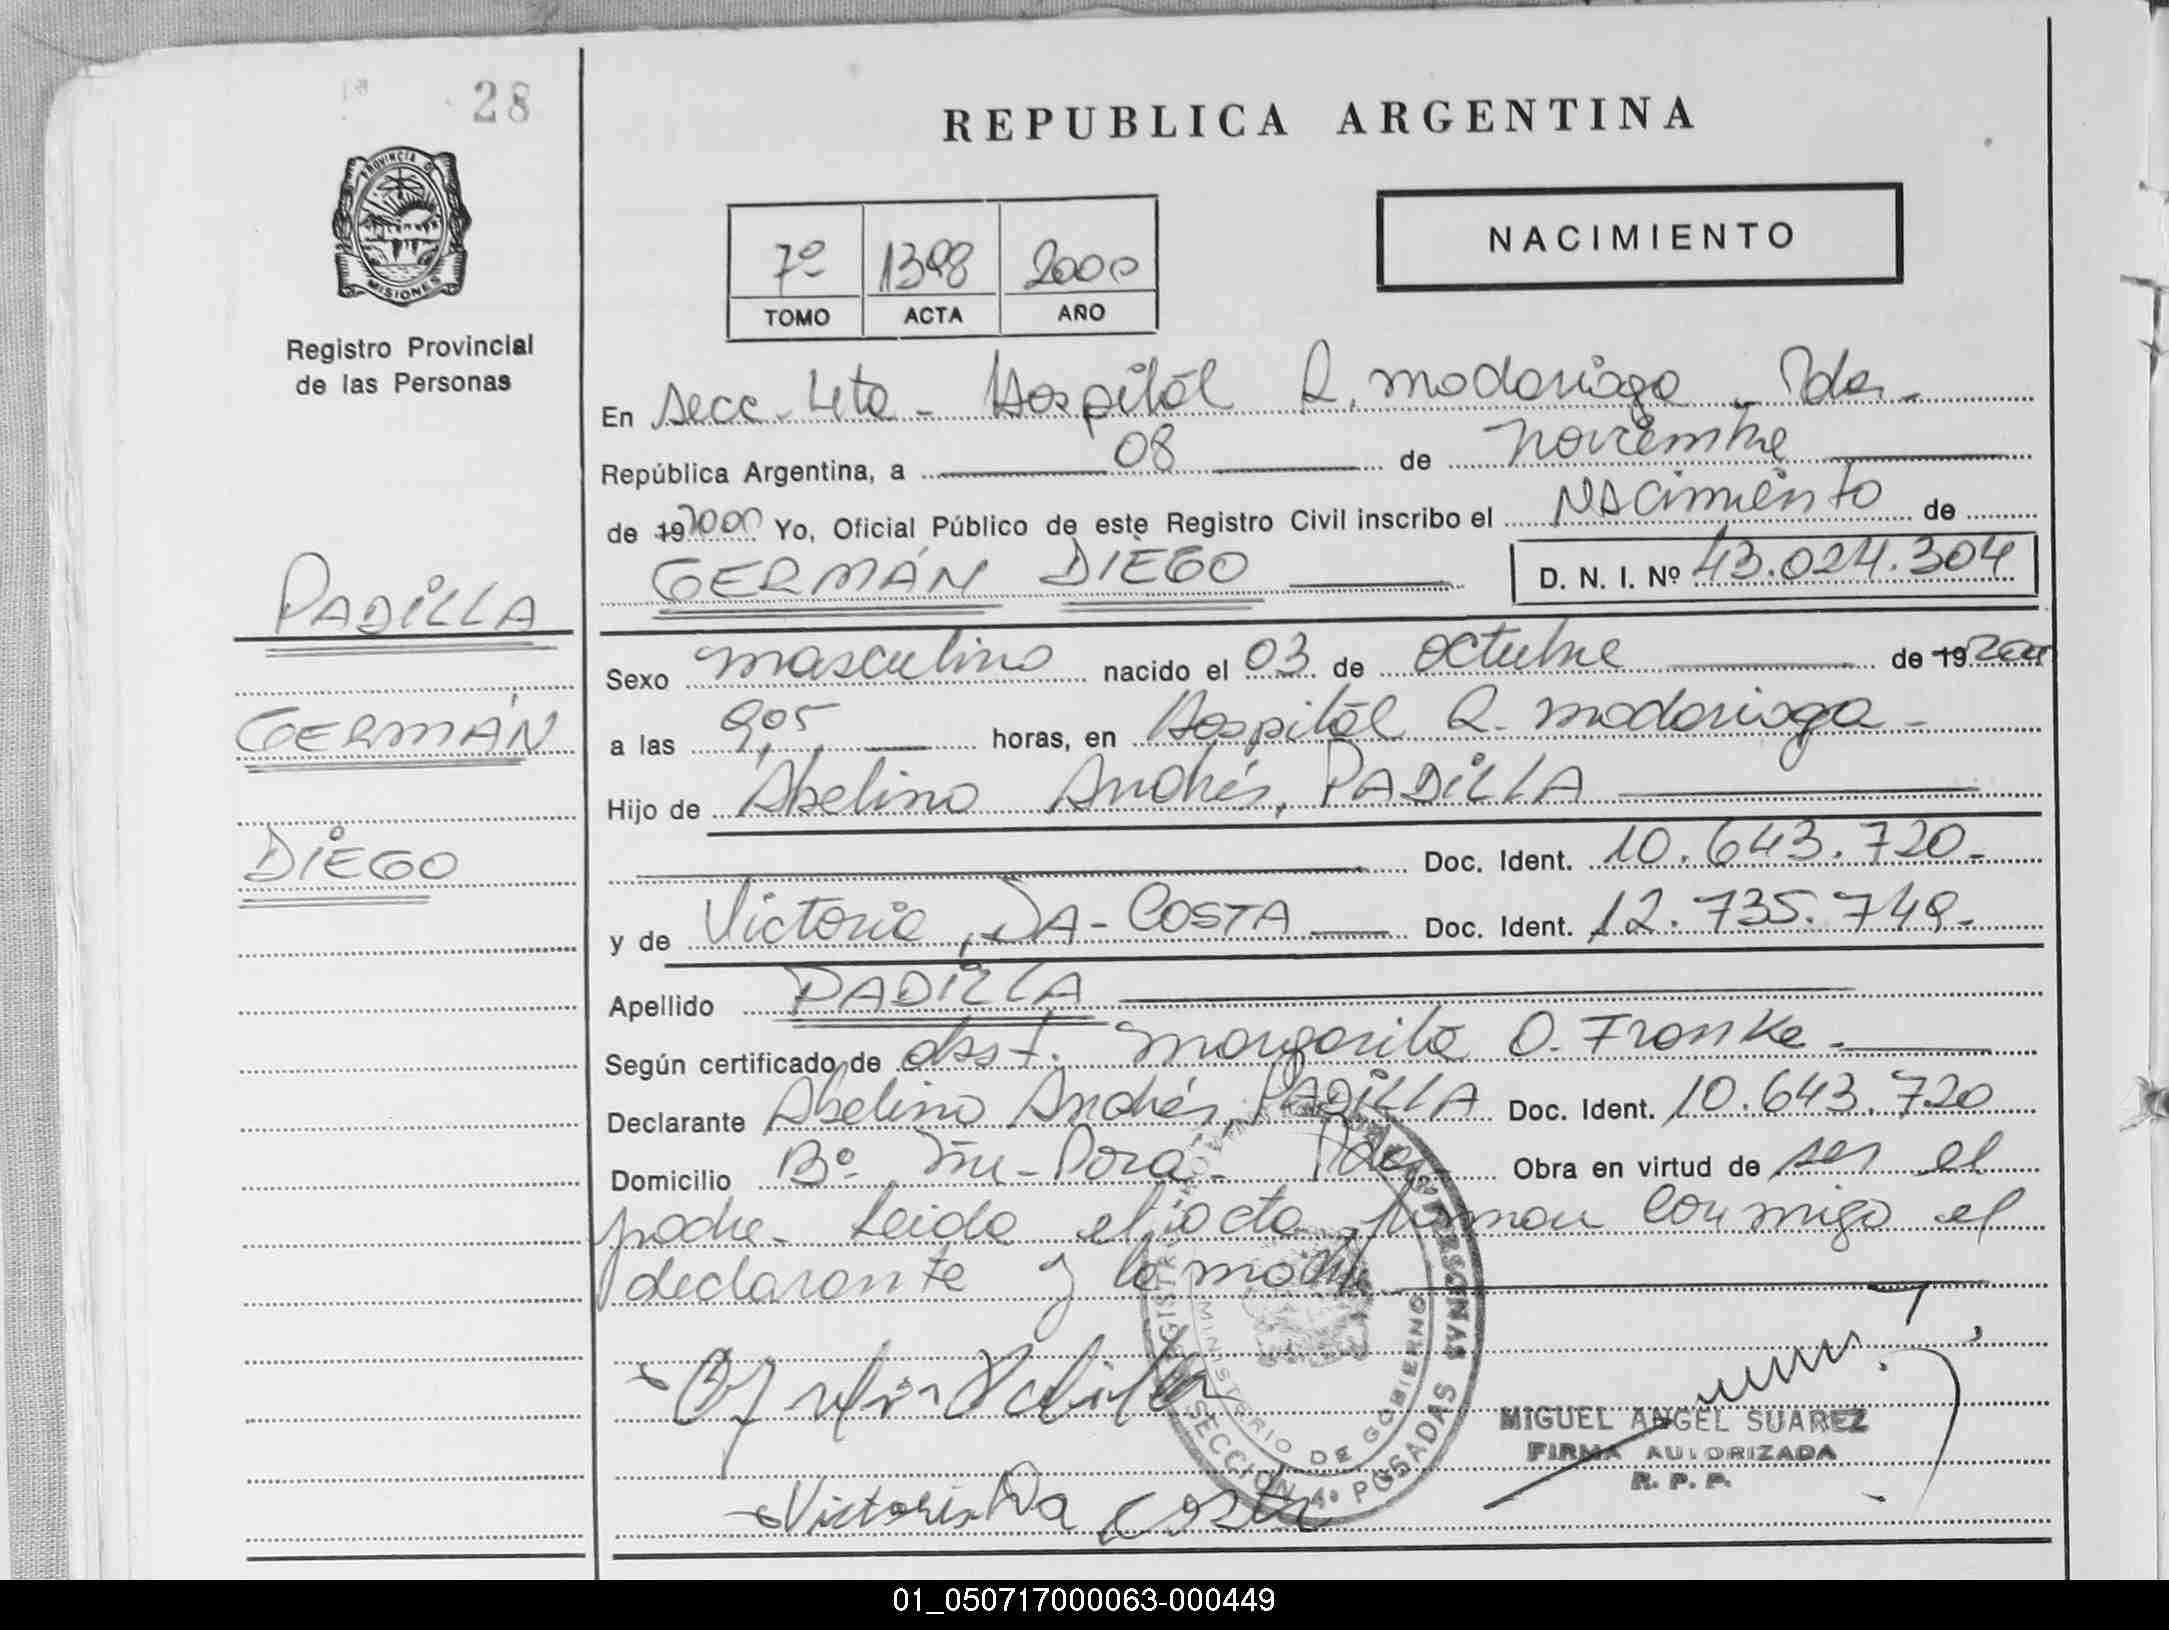 28
PROVINCIA D
MISIONES
Registro Provincial
de las Personas
PADILLA
GERMÁN
DIEGO
REPUBLICA ARGENTINA
7º 1398 2000
TOMO ACTA AÑO
NACIMIENTO
En Secc. 4ta - Hospital R. Madariaga - Pdas.-
República Argentina, a 08 de noviembre
de 19 2000 Yo, Oficial Público de este Registro Civil inscribo el Nacimiento de
GERMÁN DIEGO D. N. I. Nº 43.024.304
Sexo masculino nacido el 03 de octubre de 19 2000
a las 9,05 horas, en Hospital R. Madariaga -
Hijo de Abelino Andrés, PADILLA
Doc. Ident. 10.643.720.-
y de Victoria, DA-COSTA Doc. Ident. 12.735.749.-
Apellido PADILLA
Según certificado de obst. Margarita O. Franke.-
Declarante Abelino Andrés, PADILLA Doc. Ident. 10.643.720
Domicilio Bº Ñu-Porá - Pdas. Obra en virtud de ser el
padre. Leida el acta, firman conmigo el
declarante y la madre
Victoria Da Costa
MINISTERIO DE GOBIERNO
SECCION 4º POSADAS
MIGUEL ANGEL SUAREZ
FIRMA AUTORIZADA
R. P. P.
01_050717000063-000449